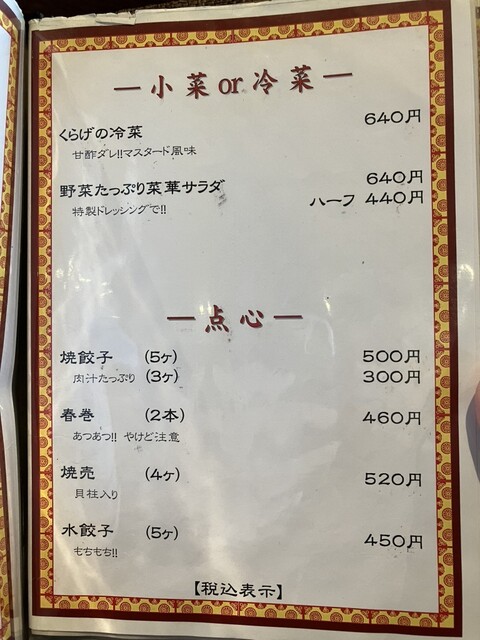 — 小菜or冷菜 —
くらげの冷菜 640円
甘酢ダレ!!マスタード風味
野菜たっぷり菜華サラダ 640円
特製ドレッシングで!! ハーフ 440円
— 点心 —
焼餃子 (5ヶ) 500円
肉汁たっぷり (3ヶ) 300円
春巻 (2本) 460円
あつあつ!! やけど注意
焼売 (4ヶ) 520円
貝柱入り
水餃子 (5ヶ) 450円
もちもち!!
【税込表示】